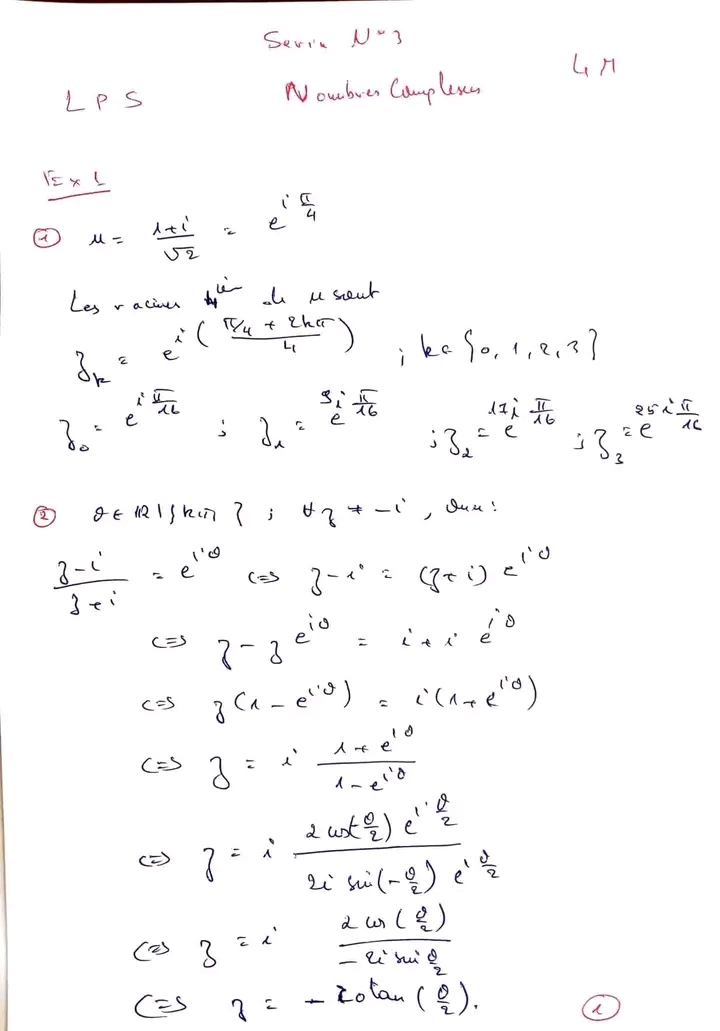 Serie N° 3
4 M
L P S
Nombres Complexes
Ex 1
① u = (1+i)/√2 = e^{iπ/4}
Les racines 4^{ièm} de u sont
z_k = e^{i((π/4 + 2kπ)/4)} ; k ∈ {0, 1, 2, 3}
z_0 = e^{iπ/16} ; z_1 = e^{9iπ/16} ; z_2 = e^{17iπ/16} ; z_3 = e^{25iπ/16}
② θ ∈ ℝ \ {kπ} ; ∀ z ≠ -i, on a :
(z-i)/(z+i) = e^{iθ} <=> z-i = (z+i) e^{iθ}
<=> z - z e^{iθ} = i + i e^{iθ}
<=> z(1 - e^{iθ}) = i(1 + e^{iθ})
<=> z = i (1+e^{iθ})/(1-e^{iθ})
<=> z = i (2 cos(θ/2) e^{iθ/2})/(2i sin(-θ/2) e^{iθ/2})
<=> z = i (2 cos(θ/2))/(-2i sin θ/2)
<=> z = - cotan (θ/2).
①